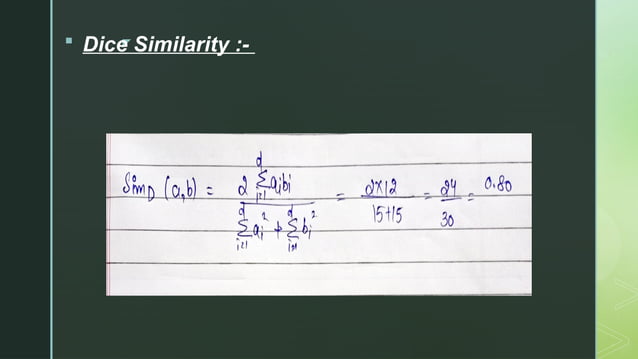 Dice Similarity :-
Sim_D (a,b) = 2 Σ_{i=1}^{d} a_i b_i / (Σ_{i=1}^{d} a_i² + Σ_{i=1}^{d} b_i²) = 2×12 / 15+15 = 24 / 30 = 0.80